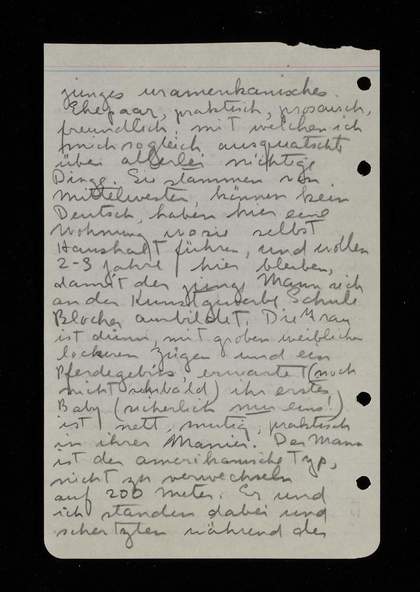 junges uramerikanisches
Ehepaar, praktisch, prosaisch,
freundlich, mit welchen ich
mich sogleich ausquatschte
über allerlei wichtige
Dinge. Sie stammen vom
Mittelwesten, können kein
Deutsch, haben hier eine
Wohnung wo sie selbst
Haushalt führen, und wollen
2-3 Jahre hier bleiben,
damit der junge Mann sich
an der Kunstgewerbe Schule
ausbildet. Die Frau
ist dünn, mit groben weiblichen
lockeren Zügen und ein
Pferdegebiss, erwartet (noch
nicht sehr bald) ihr erstes
Baby (sicherlich nur eins!)
ist nett, mutig, praktisch
in ihrer Manier. Der Mann
ist der amerikanische Typ,
nicht zu verwechseln
auf 200 Meter. Er und
ich standen dabei und
scherzten während des